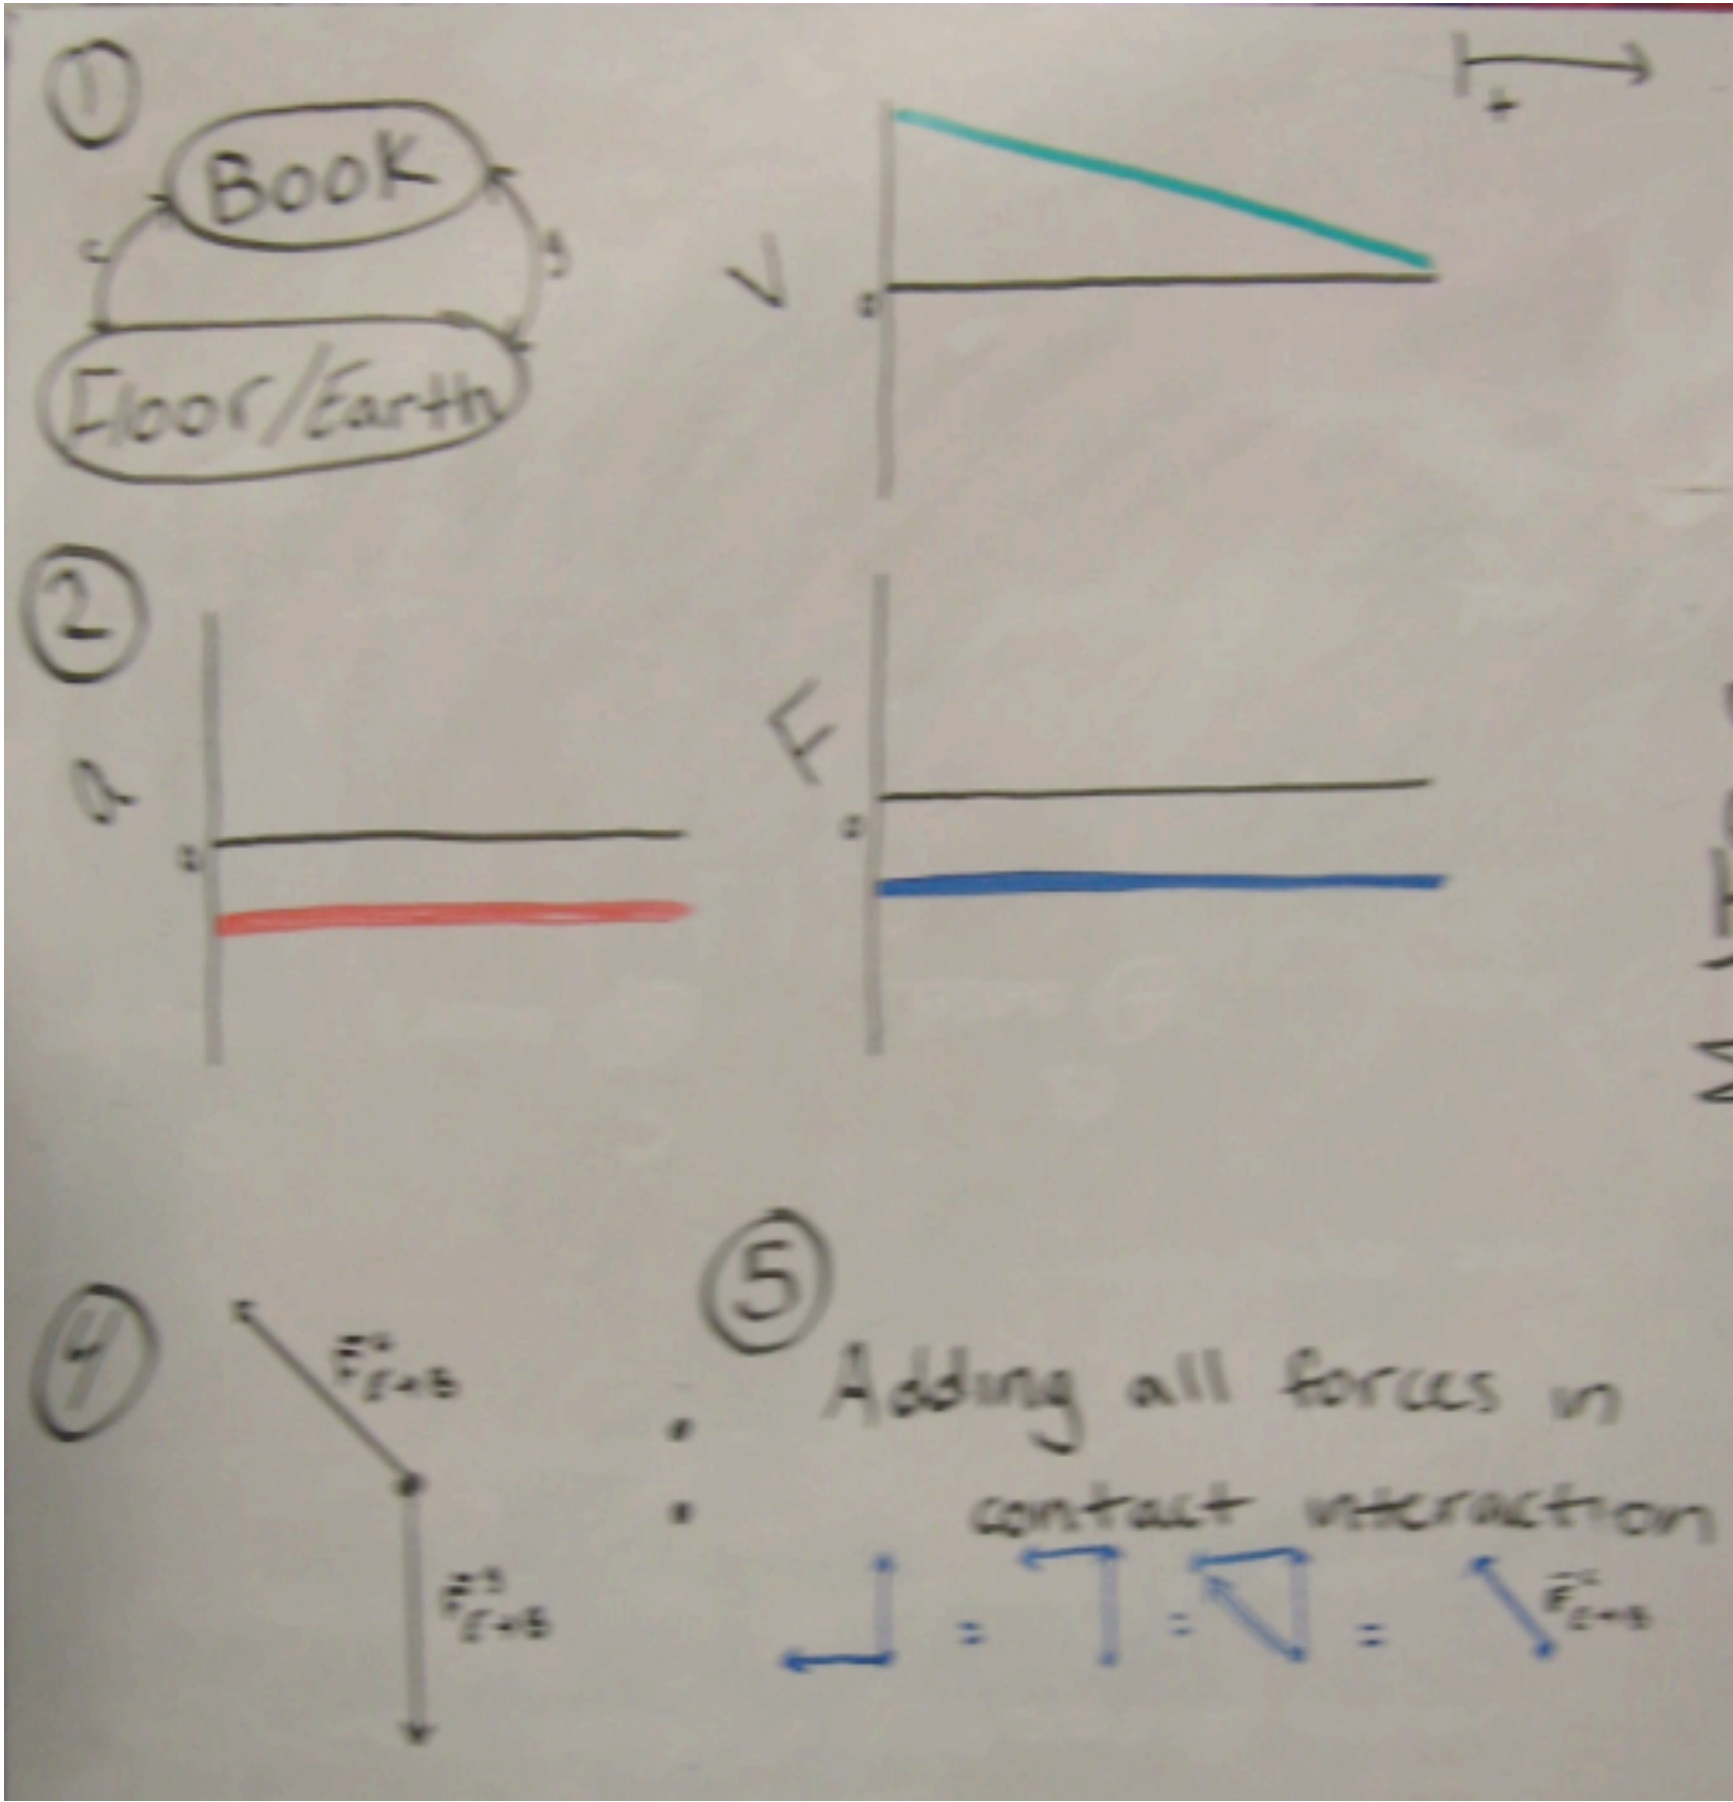 ①
Book
c
g
Floor/Earth
V
0
+
②
a
0
F
0
④
⑤
Adding all forces in
contact interaction
= = =